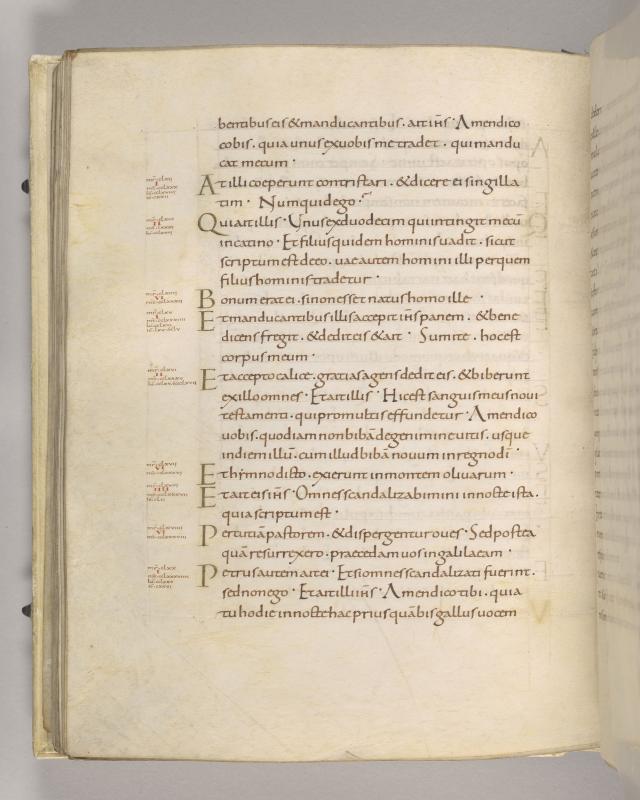 bentibus eis & manducantibus. ait ihs · Amen dico
vobis. quia unus ex vobis me tradet. qui mandu
cat mecum ·
At illi coeperunt contristari. & dicere ei singilla
tim · Numquid ego ·
Qui ait illis · Unus ex duodecim qui intingit mecū
in catino · Et filius quidem hominis vadit. sicut
scriptum est de eo. vae autem homini illi per quem
filius hominis tradetur ·
Bonum erat ei. si non esset natus homo ille ·
Et manducantibus illis accepit ihs panem. & bene
dicens fregit. & dedit eis & ait · Sumite. hoc est
corpus meum ·
Et accepto calice. gratias agens dedit eis. & biberunt
ex illo omnes · Et ait illis · Hic est sanguis meus novi
testamenti. qui pro multis effundetur · Amen dico
vobis. quod iam non bibā de genimine vitis. usque
in diem illū. cum illud bibā novum in regno dī ·
Et hymno dicto. exierunt in montem olivarum ·
Et ait eis ihs · Omnes scandalizabimini in nocte ista.
quia scriptum est ·
Percutiā pastorem. & dispergentur oves · Sed postea
quā resurrexero. praecedam vos in galilaeam ·
Petrus autem ait ei · Et si omnes scandalizati fuerint.
sed non ego · Et ait illi ihs · Amen dico tibi. quia
tu hodie in nocte hac prius quā bis gallus vocem